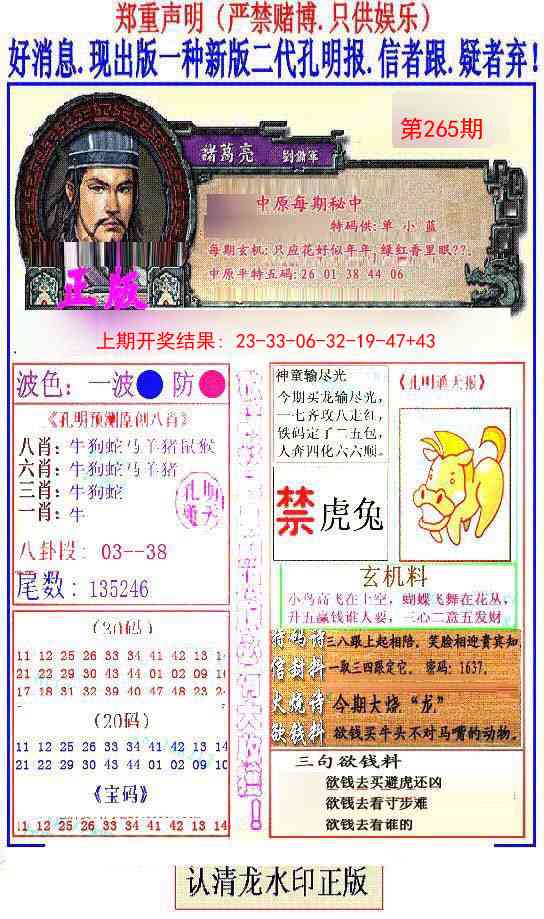 郑重声明（严禁赌博.只供娱乐）
好消息.现出版一种新版二代孔明报.信者跟.疑者弃!
第265期
諸葛亮
中原每期秘中
特码供: 单 小 蓝
每期玄机: 只应花好似年年, 绿红香里眠??.
中原平特五码: 26 01 38 44 06
正版
上期开奖结果: 23-33-06-32-19-47+43
波色: 一波 防
《孔明预测原创八肖》
八肖: 牛狗蛇马羊猪鼠猴
六肖: 牛狗蛇马羊猪
三肖: 牛狗蛇
一肖: 牛
八卦段: 03--38
尾数: 135246
神童输尽光
今期买龙输尽光,
一七齐攻八走红,
铁码定了二五包,
人奔四化六六顺。
《孔明通天报》
禁 虎兔
玄机料
小鸟高飞在上空, 蝴蝶飞舞在花丛,
升五赢钱谁人要, 三心二意五发财
(30码)
11 12 25 26 33 34 41 42 13 14
21 22 29 30 37 38 45 46 01 02
17 18 31 32 39 40 47 48 23 24
(20码)
11 12 25 26 33 34 41 42 13 14
21 22 29 30 43 44 01 02 09 10
《宝码》
11 12 25 26 33 34 41 42 13 14
特码诗
三八跟上起相陪, 笑脸相迎贵宾知,
信封料
一取三四跟定它。 密码: 1637,
火烧诗
今期大烧“龙”
欲钱料
欲钱买牛头不对马嘴的动物。
三句欲钱料
欲钱去买避虎还凶
欲钱去看寸步难
欲钱去看谁的
认清龙水印正版